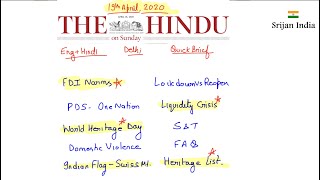 19th April, 2020
THE HINDU
on Sunday
Srijan India
Eng + Hindi Delhi Quick Brief
FDI Norms Lockdown vs Reopen
PDS - One Nation Liquidity Crisis
World Heritage Day S&T
Domestic Violence FAQ
Indian Flag - Swiss Mt. Heritage List.